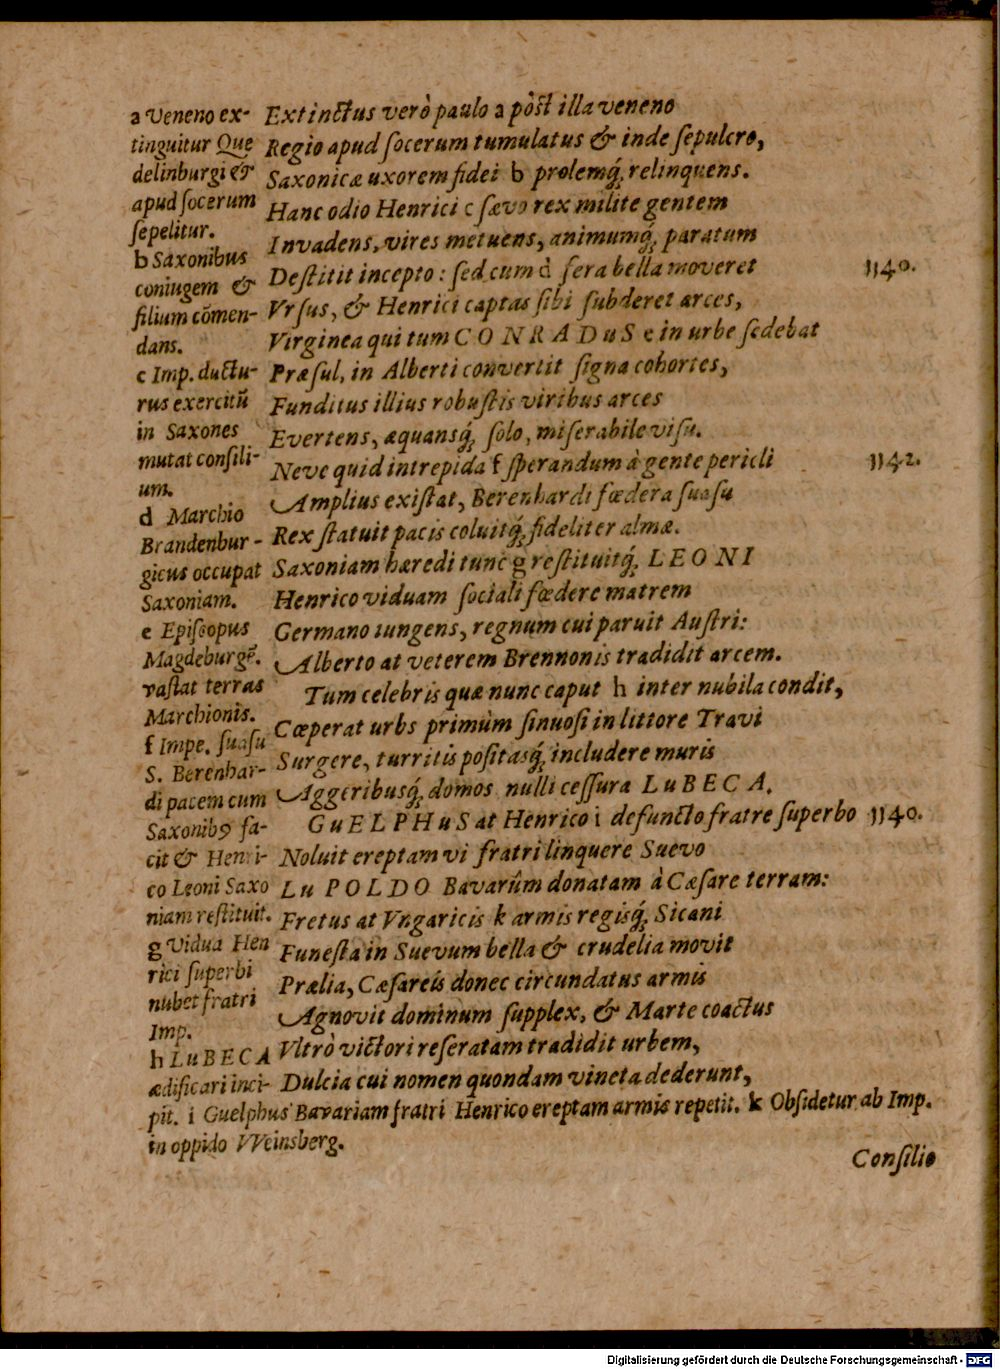 a Veneno ex-
tinguitur Que
delinburgi &
apud ſocerum
ſepelitur.
b Saxonibus
coniugem &
filium cōmen-
dans.
c Imp. ductu-
rus exercitū
in Saxones
mutat conſili-
um.
d Marchio
Brandenbur-
gicus occupat
Saxoniam.
e Epiſcopus
Magdeburgē.
vaſtat terras
Marchionis.
f Impe. ſuaſu
S. Berenhar-
di pacem cum
Saxonibꝰ fa-
cit & Henri-
co Leoni Saxo
niam reſtituit.
g Vidua Hen
rici ſuperbi
nubet fratri
Imp.
h LuBECA
ædificari inci-
pit. i Guelphus Bavariam fratri Henrico ereptam armis repetit. k Obſidetur ab Imp.
in oppido VVeinsberg.
Extinctus verò paulo a pòſt illa veneno
Regio apud ſocerum tumulatus & inde ſepulcro,
Saxonicæ uxorem fidei b prolemq́; relinquens.
Hanc odio Henrici c ſævo rex milite gentem
Invadens, vires metuens, animumq́; paratum
Deſtitit incepto: ſed cum d fera bella moveret
Vrſus, & Henrici captas ſibi ſubderet arces,
Virginea qui tum CONRADuS e in urbe ſedebat
Præſul, in Alberti convertit ſigna cohortes,
Funditus illius robuſtis viribus arces
Evertens, æquansq́; ſolo, miſerabile viſu.
Neve quid intrepida f ſperandum à gente pericli
Amplius exiſtat, Berenhardi fœdera ſuaſu
Rex ſtatuit pacis coluitq́; fideliter almæ.
Saxoniam hæredi tunc g reſtituitq́; LEONI
Henrico viduam ſociali fœdere matrem
Germano iungens, regnum cui paruit Auſtri:
Alberto at veterem Brennonis tradidit arcem.
Tum celebris quæ nunc caput h inter nubila condit,
Cœperat urbs primùm ſinuoſi in littore Travi
Surgere, turritis poſitasq́; includere muris
Aggeribusq́; domos nulli ceſſura LuBECA.
GuELPHuS at Henrico i defuncto fratre ſuperbo
Noluit ereptam vi fratri linquere Suevo
LuPOLDO Bavarûm donatam à Cæſare terram:
Fretus at Vngaricis k armis regisq́; Sicani
Funeſta in Suevum bella & crudelia movit
Prælia, Cæſareis donec circundatus armis
Agnovit dominum ſupplex, & Marte coactus
Vltrò victori reſeratam tradidit urbem,
Dulcia cui nomen quondam vineta dederunt,
1140.
1142.
1140.
Conſilio
Digitalisierung gefördert durch die Deutsche Forschungsgemeinschaft - DFG